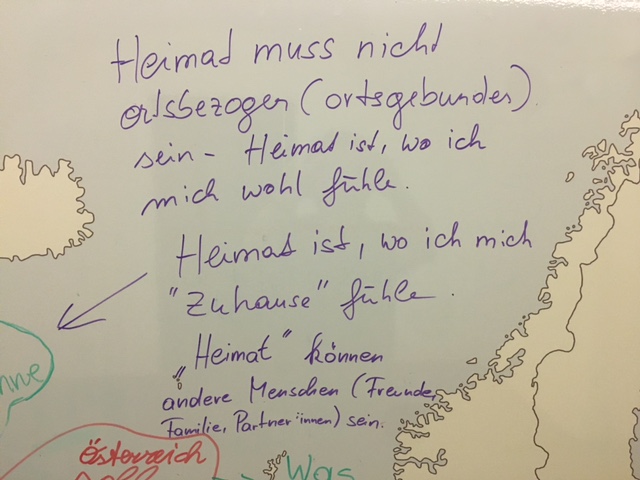 Heimat muss nicht
ortsbezogen (ortsgebunden)
sein - Heimat ist, wo ich
mich wohl fühle.
Heimat ist, wo ich mich
"Zuhause" fühle.
"Heimat" können
andere Menschen (Freunde,
Familie, Partner*innen) sein.
Österreich
Was